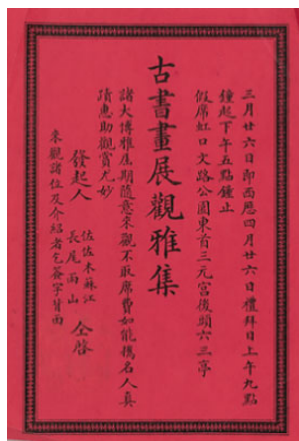 三月廿六日即西曆四月廿六日禮拜日上午九點
鐘起下午五點鐘止
假席虹口文路公園東首三元宮後頭六三亭
古書畫展觀雅集
諸大博雅屆期隨意來觀不取席費如能携名人真
蹟惠助觀賞尤妙
發起人
佐佐木蘇江
長尾雨山
仝啓
來觀諸位及介紹者乞簽字皆由